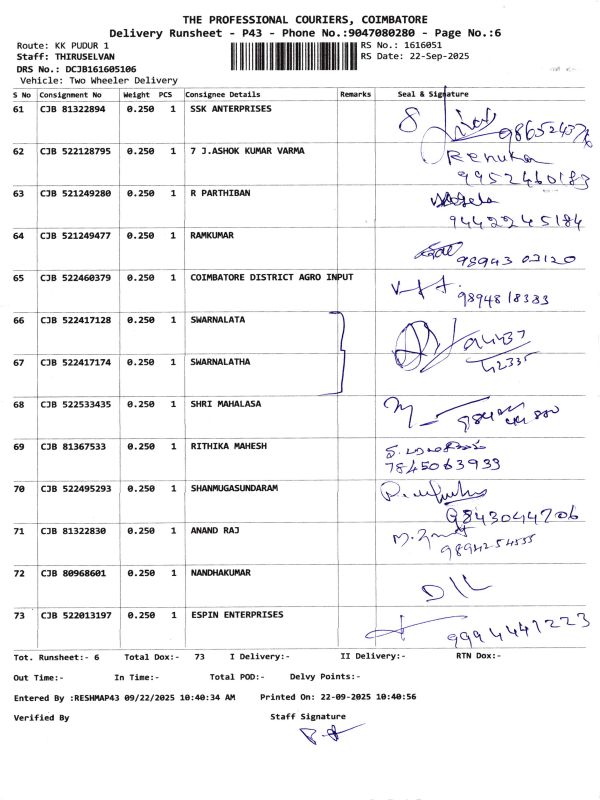 THE PROFESSIONAL COURIERS, COIMBATORE
Delivery Runsheet - P43 - Phone No.:9047080280 - Page No.:6
Route: KK PUDUR 1 RS No.: 1616051
Staff: THIRUSELVAN RS Date: 22-Sep-2025
DRS No.: DCJB161605106
Vehicle: Two Wheeler Delivery
S No Consignment No Weight PCS Consignee Details Remarks Seal & Signature
61 CJB 81322894 0.250 1 SSK ANTERPRISES
62 CJB 522128795 0.250 1 7 J.ASHOK KUMAR VARMA Renuka
9952460183
63 CJB 521249280 0.250 1 R PARTHIBAN
9442245184
64 CJB 521249477 0.250 1 RAMKUMAR
98943 02120
65 CJB 522460379 0.250 1 COIMBATORE DISTRICT AGRO INPUT
9894818383
66 CJB 522417128 0.250 1 SWARNALATA
94437
67 CJB 522417174 0.250 1 SWARNALATHA 42335
68 CJB 522533435 0.250 1 SHRI MAHALASA
69 CJB 81367533 0.250 1 RITHIKA MAHESH
7845063933
70 CJB 522495293 0.250 1 SHANMUGASUNDARAM
9843044706
71 CJB 81322830 0.250 1 ANAND RAJ
72 CJB 80968601 0.250 1 NANDHAKUMAR
73 CJB 522013197 0.250 1 ESPIN ENTERPRISES
9994441223
Tot. Runsheet:- 6 Total Dox:- 73 I Delivery:- II Delivery:- RTN Dox:-
Out Time:- In Time:- Total POD:- Delvy Points:-
Entered By :RESHMAP43 09/22/2025 10:40:34 AM Printed On: 22-09-2025 10:40:56
Verified By Staff Signature